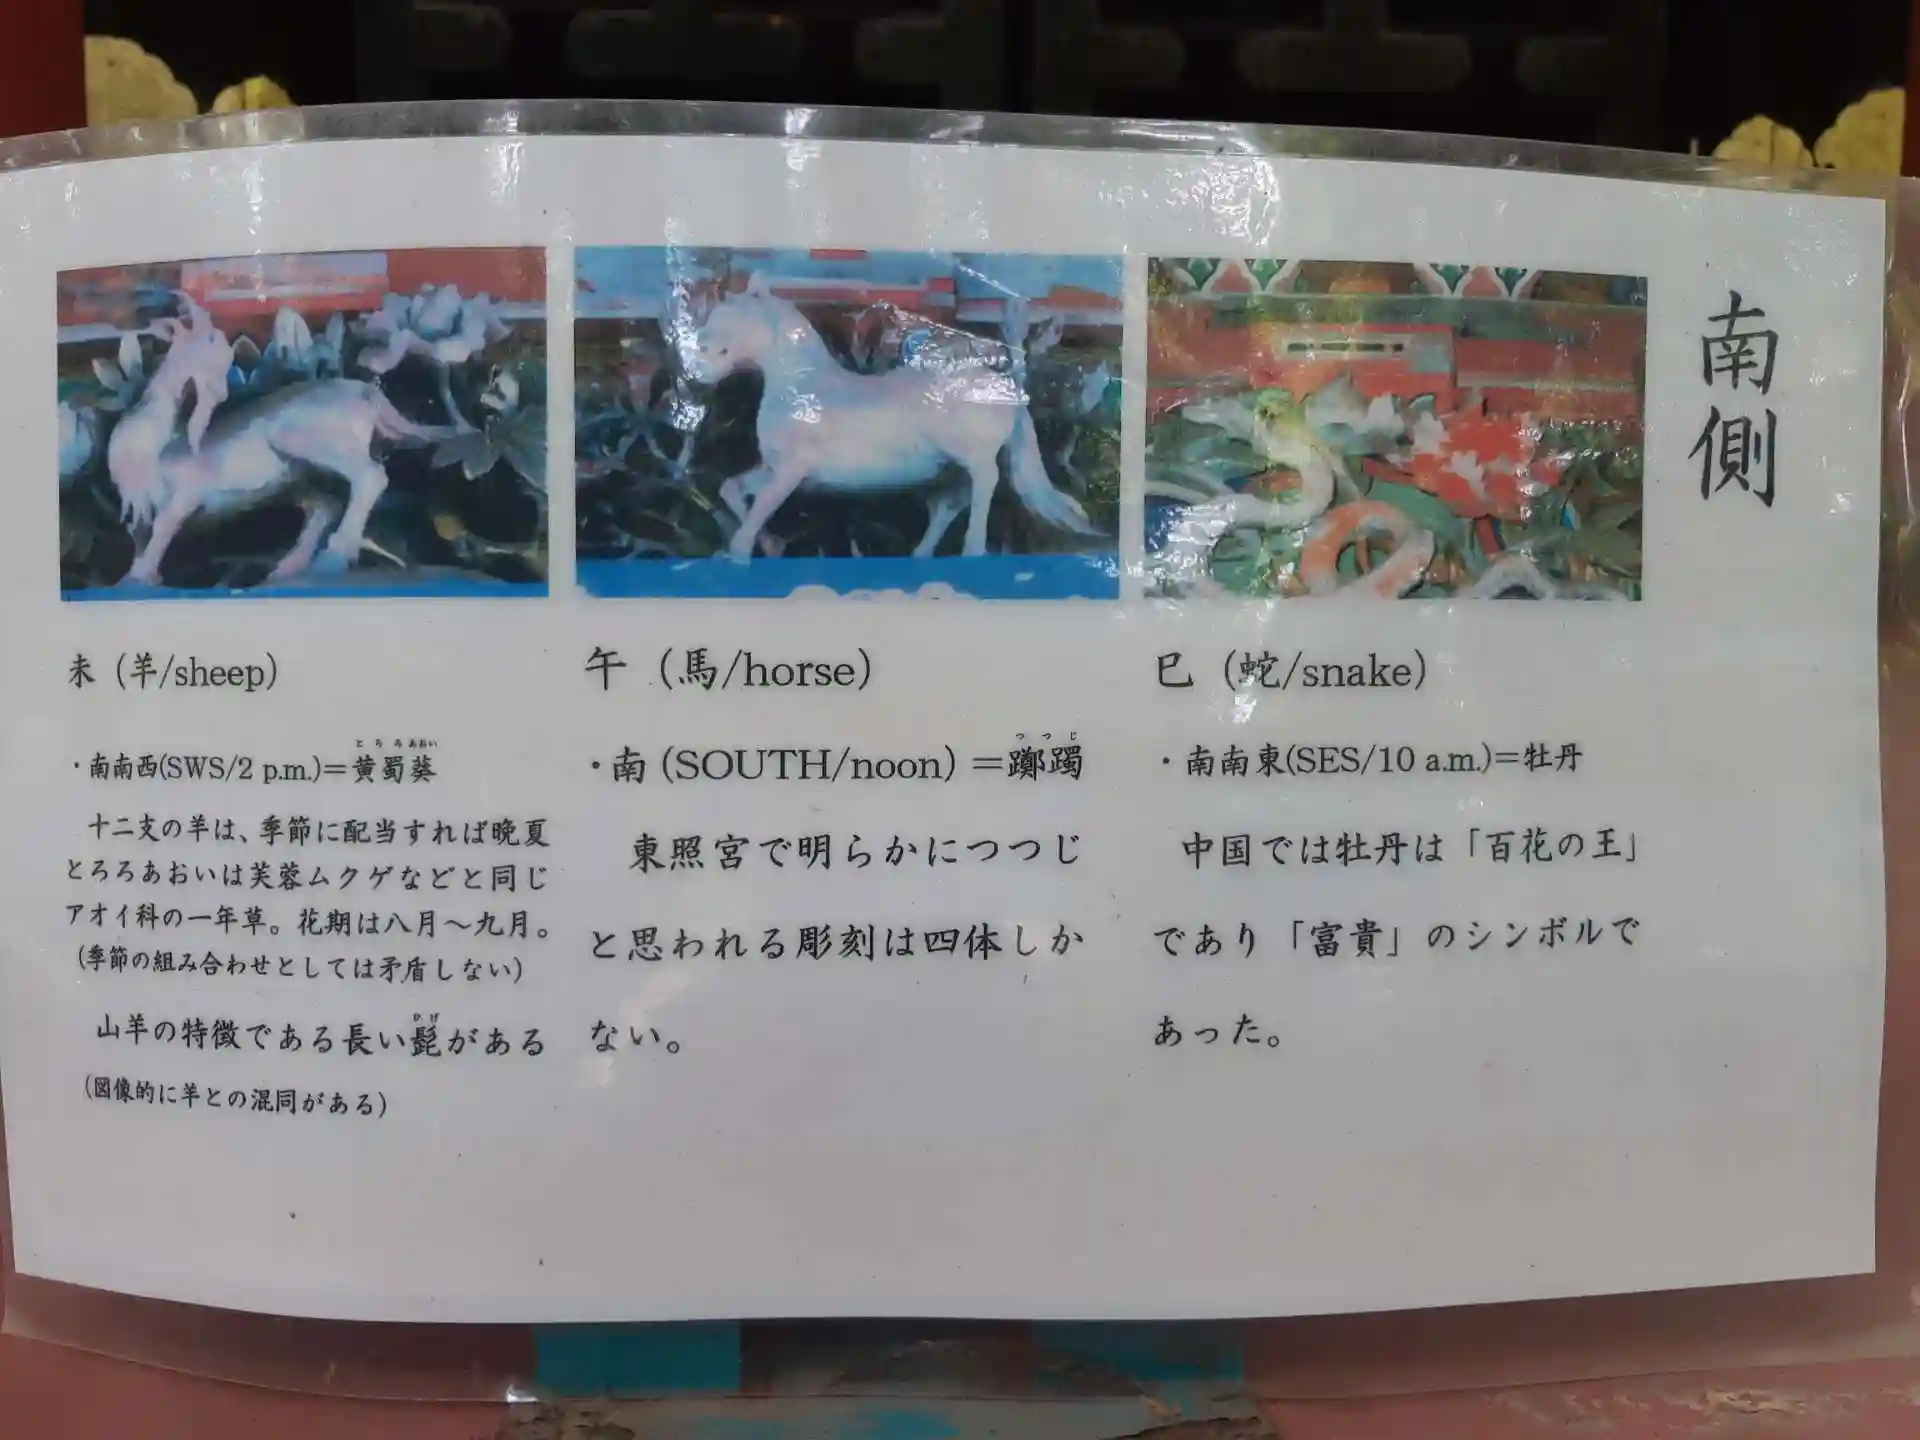 南側
未（羊/sheep）
・南南西(SWS/2 p.m.)＝黄蜀葵
とろろあおい
十二支の羊は、季節に配当すれば晩夏
とろろあおいは芙蓉ムクゲなどと同じ
アオイ科の一年草。花期は八月～九月。
（季節の組み合わせとしては矛盾しない）
山羊の特徴である長い髭がある
ひげ
（図像的に羊との混同がある）
午（馬/horse）
・南（SOUTH/noon）＝躑躅
つつじ
東照宮で明らかにつつじ
と思われる彫刻は四体しか
ない。
巳（蛇/snake）
・南南東(SES/10 a.m.)＝牡丹
中国では牡丹は「百花の王」
であり「富貴」のシンボルで
あった。